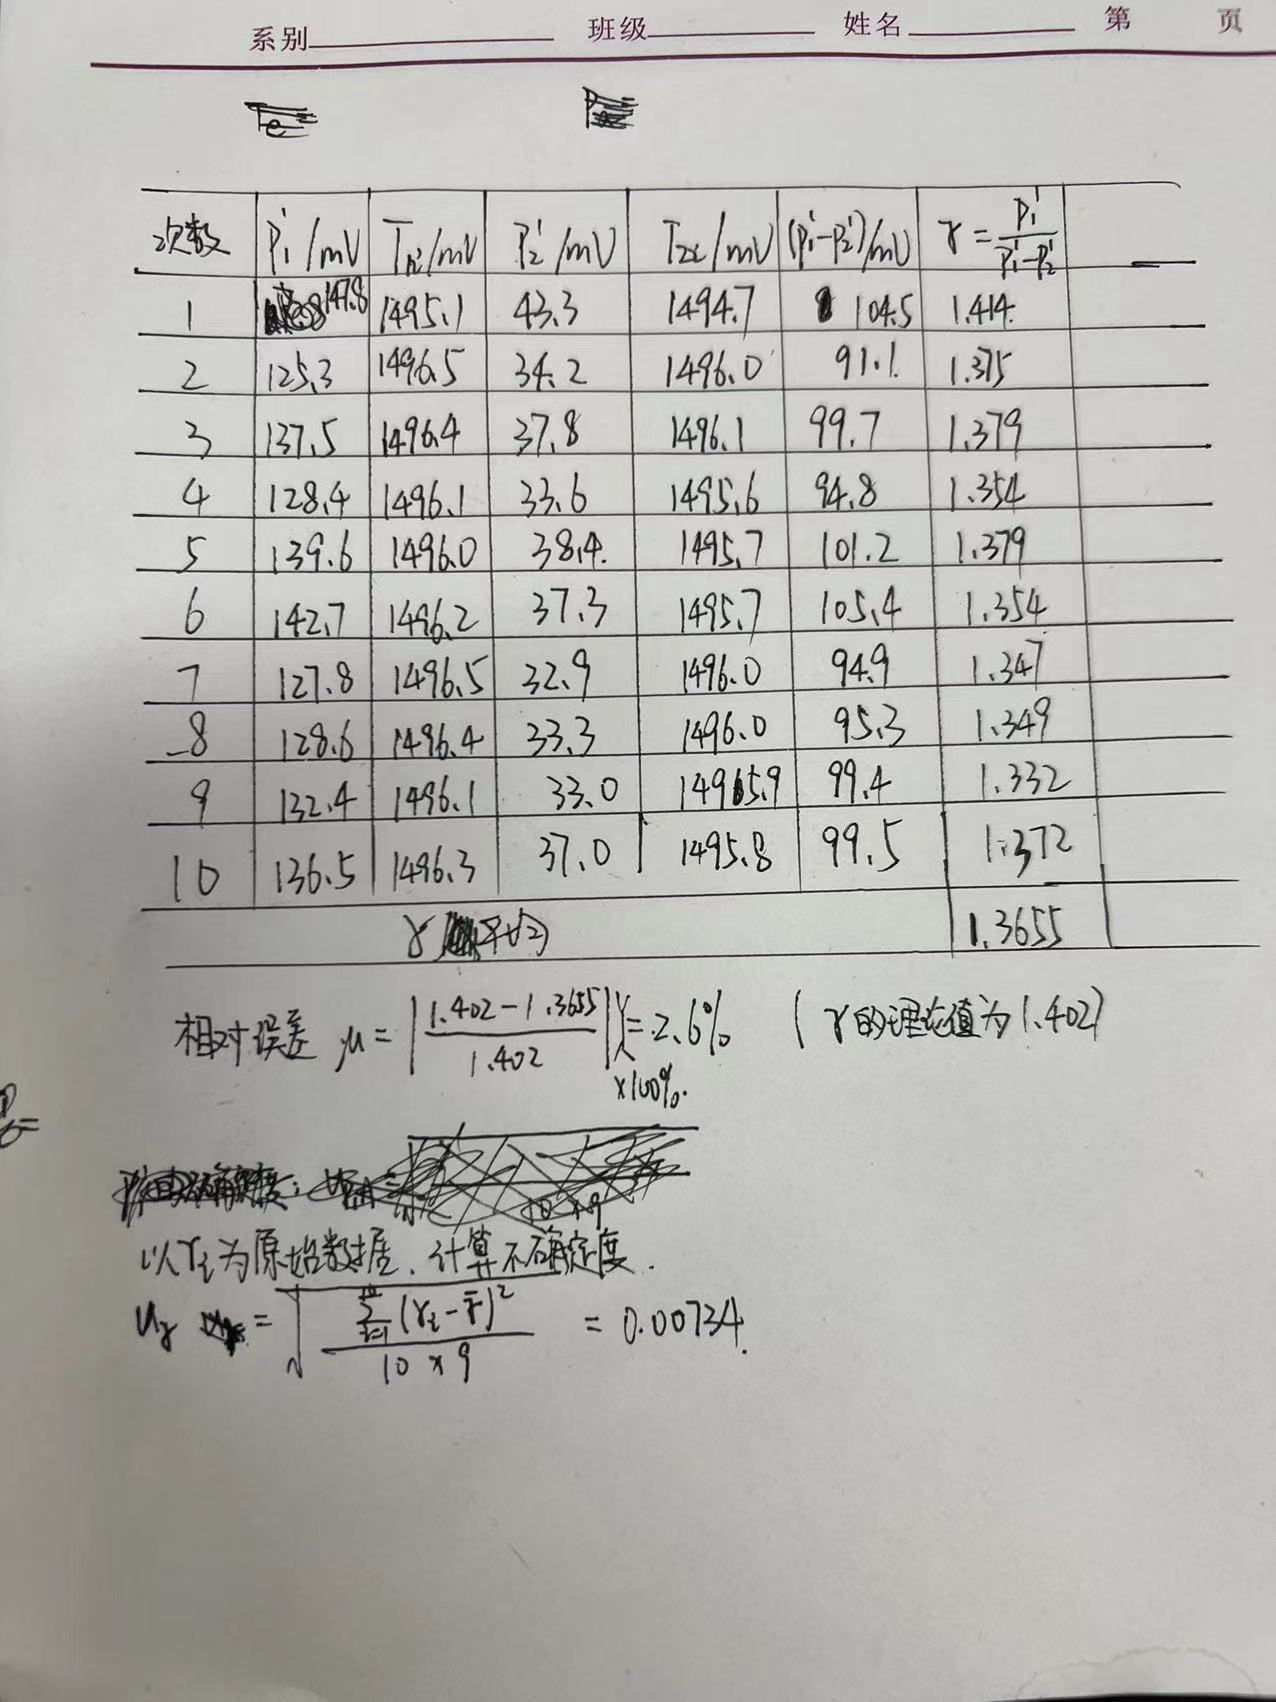 系别 班级 姓名 第 页
次数 P₁'/mV T₁ᵢ'/mV P₂'/mV T₂ᵢ/mV (P₁'-P₂')/mV γ=P₁'/(P₁'-P₂')
1 147.8 1495.1 43.3 1494.7 104.5 1.414
2 125.3 1496.5 34.2 1496.0 91.1 1.375
3 137.5 1496.4 37.8 1496.1 99.7 1.379
4 128.4 1496.1 33.6 1495.6 94.8 1.354
5 139.6 1496.0 38.4 1495.7 101.2 1.379
6 142.7 1496.2 37.3 1495.7 105.4 1.354
7 127.8 1496.5 32.9 1496.0 94.9 1.347
8 128.6 1496.4 33.3 1496.0 95.3 1.349
9 132.4 1496.1 33.0 1495.9 99.4 1.332
10 136.5 1496.3 37.0 1495.8 99.5 1.372
γ 平均 1.3655
相对误差 μ=|(1.402-1.3655)/1.402|×100%=2.6% (γ的理论值为1.402)
以γᵢ为原始数据,计算不确定度.
Uγ = √(Σᵢ₌₁¹⁰(γᵢ-γ̄)²/(10×9)) = 0.00734.